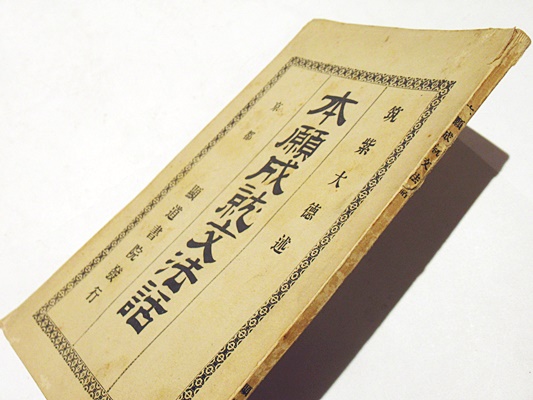 筑紫大德述
本願成就文法話
京都　顯道書院發行
本願成就文法話